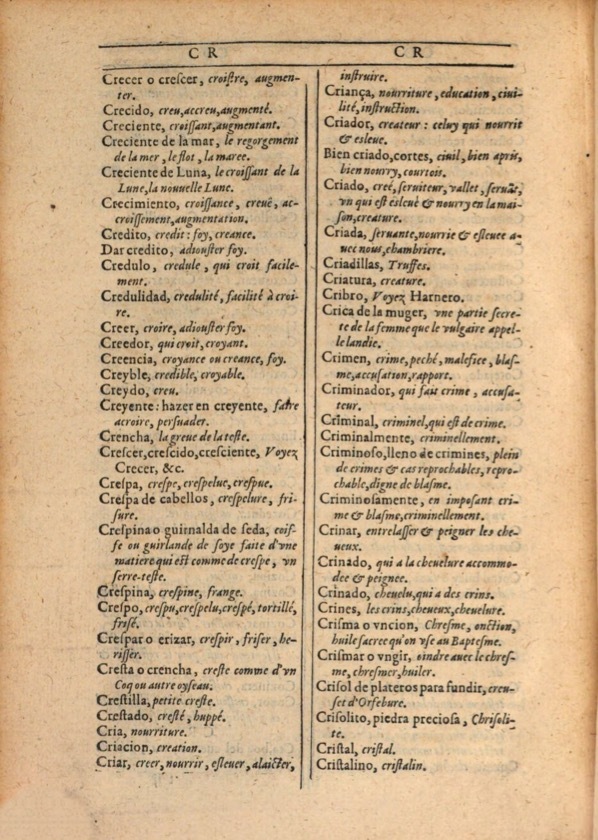 C R
Crecer o creſcer, croiſtre, augmen-
ter.
Crecido, creu,accreu,augmenté.
Creciente, croiſſant,augmentant.
Creciente de la mar, le regorgement
de la mer, le flot, la maree.
Creciente de Luna, le croiſſant de la
Lune,la nouuelle Lune.
Crecimiento, croiſſance, creuë, ac-
croiſſement,augmentation.
Credito, credit: foy, creance.
Dar credito, adiouſter foy.
Credulo, credule, qui croit facile-
ment.
Credulidad, credulité, facilité à croi-
re.
Creer, croire, adiouſter foy.
Creedor, qui croit, croyant.
Creencia, croyance ou creance, foy.
Creyble, credible, croyable.
Creydo, creu.
Creyente: hazer en creyente, faire
acroire, perſuader.
Crencha, la greue de la teſte.
Creſcer,creſcido,creſciente, Voyez
Crecer, &c.
Creſpa, creſpe, creſpelue, creſpue.
Creſpa de cabellos, creſpelure, fri-
ſure.
Creſpina o guirnalda de ſeda, coif-
fe ou guirlande de ſoye faite d'vne
matiere qui eſt comme de creſpe, vn
ſerre-teſte.
Creſpina, creſpine, frange.
Creſpo, creſpu,creſpelu,creſpé, tortillé,
friſé.
Creſpar o erizar, creſpir, friſer, he-
riſſer.
Creſta o crencha, creſte comme d'vn
Coq ou autre oyſeau.
Creſtilla, petite creſte.
Creſtado, creſté, huppé.
Cria, nourriture.
Criacion, creation.
Criar, creer, nourrir, eſleuer, alaicter,
C R
inſtruire.
Criança, nourriture, education, ciui-
lité, inſtruction.
Criador, createur: celuy qui nourrit
& esleue.
Bien criado,cortes, ciuil, bien apris,
bien nourry, courtois.
Criado, creé, ſeruiteur, vallet, ſeruãt,
vn qui eſt esleué & nourry en la mai-
ſon,creature.
Criada, ſeruante,nourrie & esleuee a-
uec nous,chambriere.
Criadillas, Truffes.
Criatura, creature.
Cribro, Voyez Harnero.
Crica de la muger, vne partie ſecre-
te de la femme que le vulgaire appel-
le landie.
Crimen, crime, peché, malefice, blaſ-
me,accuſation,rapport.
Criminador, qui fait crime, accuſa-
teur.
Criminal, criminel,qui eſt de crime.
Criminalmente, criminellement.
Criminoſo,lleno de crimines, plein
de crimes & cas reprochables, repro-
chable,digne de blaſme.
Criminoſamente, en impoſant cri-
me & blaſme,criminellement.
Crinar, entrelaſſer & peigner les che-
ueux.
Crinado, qui a la cheuelure accommo-
dee & peignee.
Crinado, cheuelu,qui a des crins.
Crines, les crins,cheueux,cheuelure.
Criſma o vncion, Chreſme, onction,
huile ſacree qu'on vſe au Bapteſme.
Criſmar o vngir, oindre auec le chreſ-
me, chreſmer,huiler.
Criſol de plateros para fundir, creu-
ſet d'Orfebure.
Criſolito, piedra precioſa, Chriſoli-
te.
Criſtal, criſtal.
Criſtalino, criſtalin.